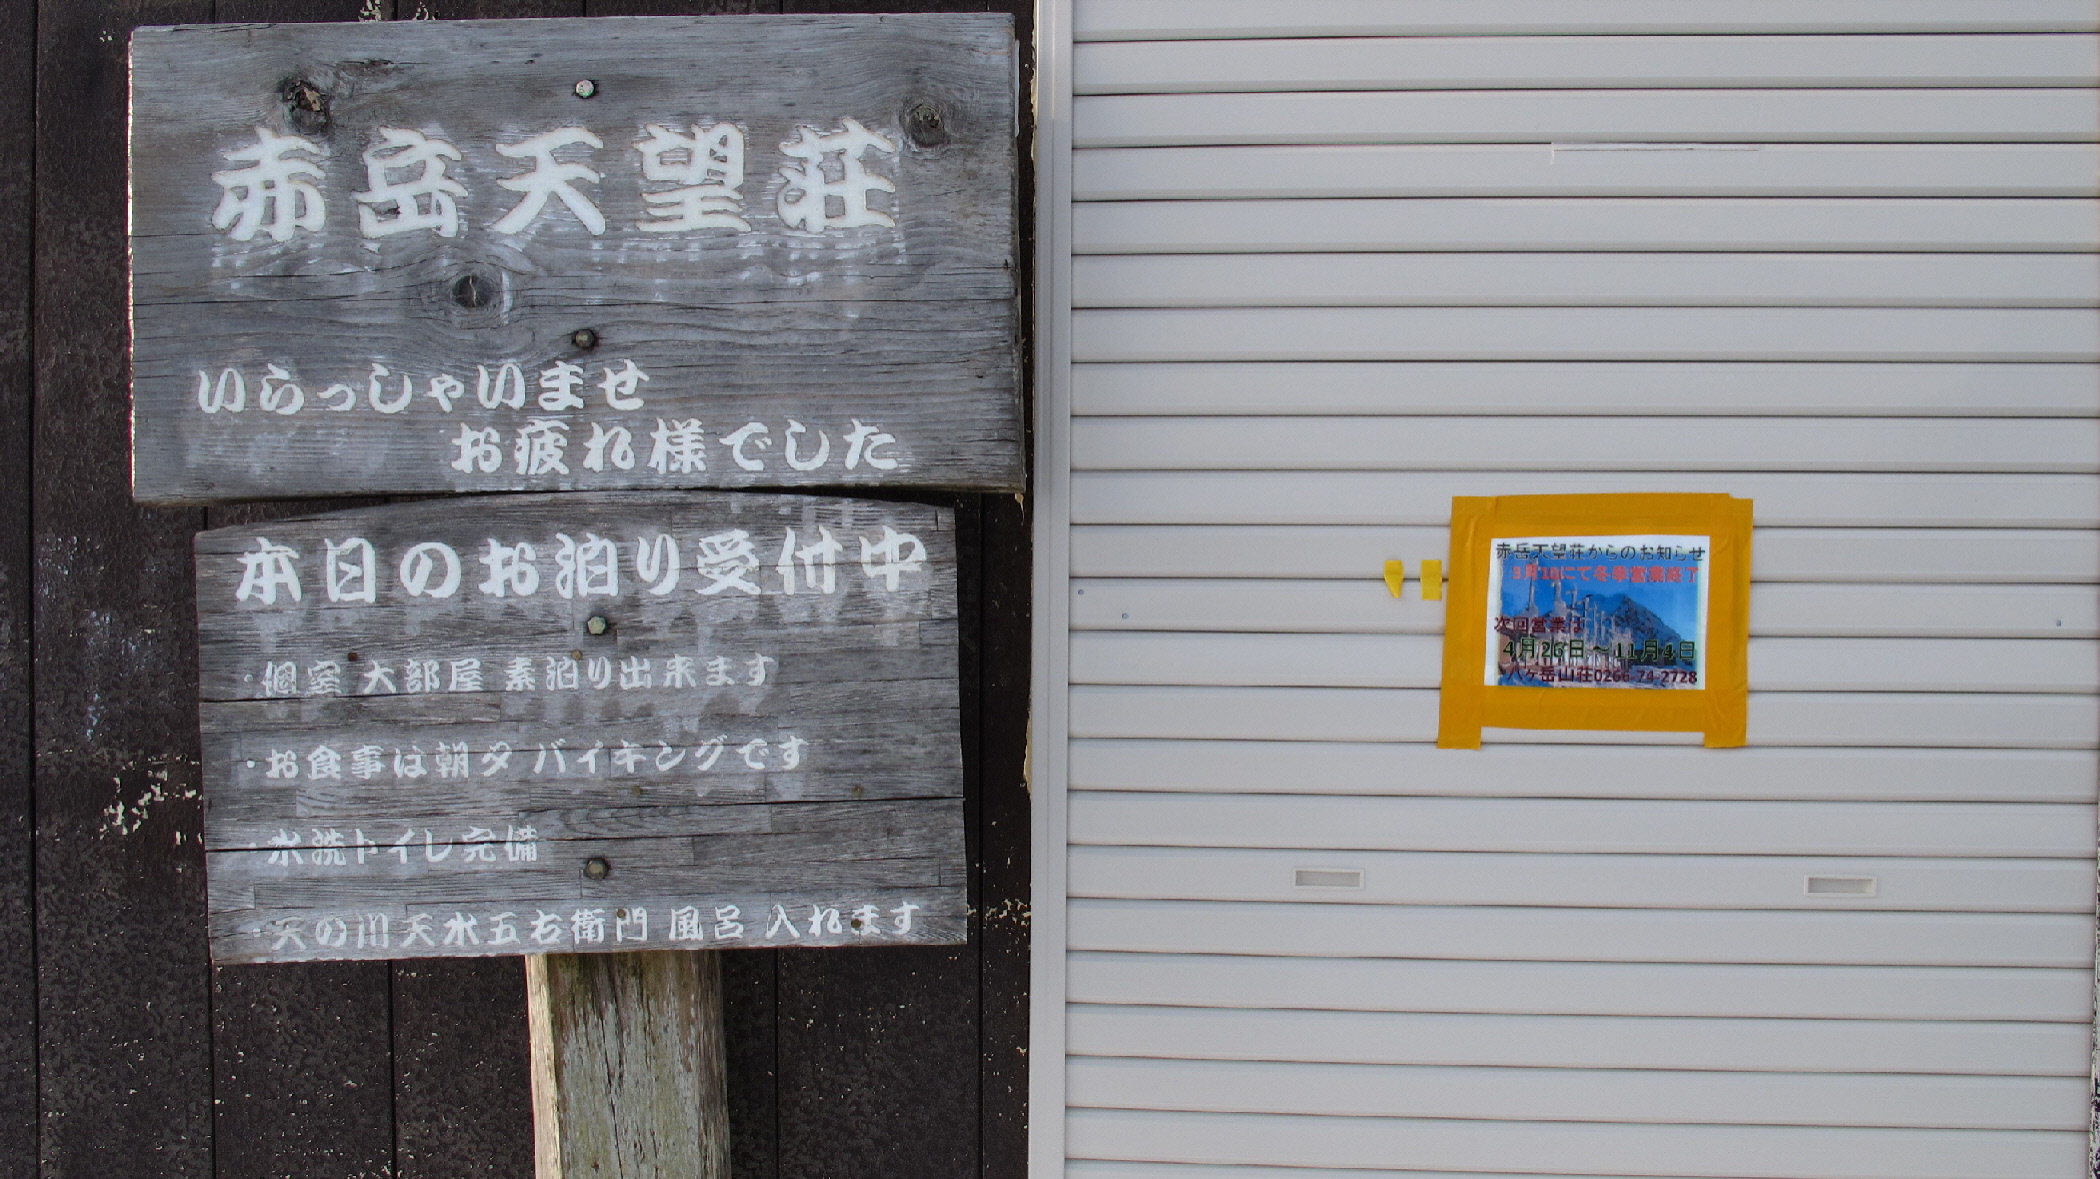 赤岳天望荘
いらっしゃいませ
お疲れ様でした
本日のお泊り受付中
・個室 大部屋 素泊り出来ます
・お食事は朝夕 バイキングです
・水洗トイレ完備
・天の川天水五右衛門 風呂 入れます
赤岳天望荘からのお知らせ
3月10にて冬季営業終了
次回営業は
4月26日～11月4日
八ヶ岳山荘0266-74-2728